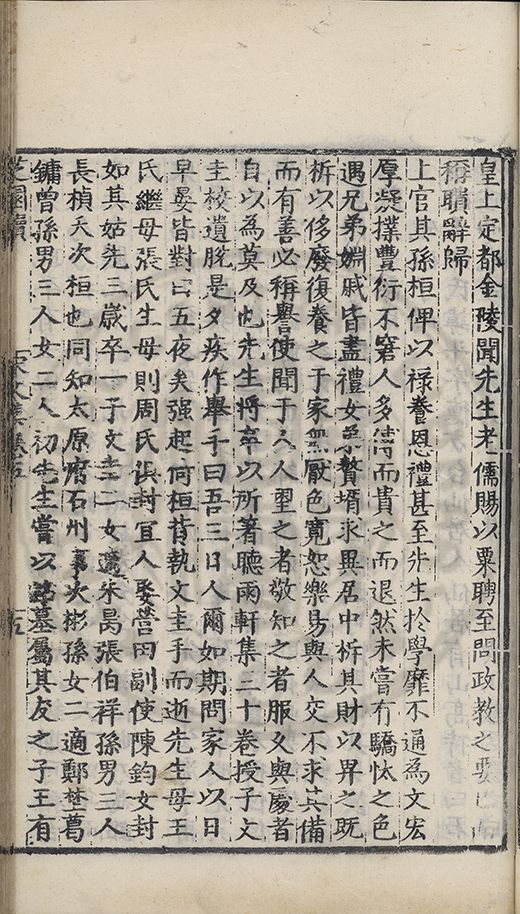 皇上定都金陵聞先生老儒賜以粟聘至問政教之要
稱職辭歸
上官其孫桓俾以祿養恩禮甚至先生於學靡不通為文宏
厚凝撲豐衍不窘人多傳而貴之而退然未嘗有驕怢之色
遇兄弟婣戚皆盡禮女弟贅壻求異居中析其財以畀之既
析以侈廢復養之于家無厭色寬恕樂易與人交不求其備
而有善必稱譽使聞于人人望之者敬知之者服久與處者
自以為莫及也先生將卒以所著聽雨軒集三十卷授子文
圭校遺脫是夕疾作舉手曰吾三日人爾如期問家人以日
早晏皆對曰五夜矣强起何桓背執文圭手而逝先生母王
氏繼母張氏生母則周氏俱封宜人娶營田副使陳鈞女封
如其姑先三歲卒一子文圭二女適朱昺張伯祥孫男三人
長楨夭次桓也同知太原府石州事次彬孫女二適鄭埜葛
鏞曾孫男三人女二人初先生嘗以銘墓屬其友之子王有
芝園續 宋文集卷五 五